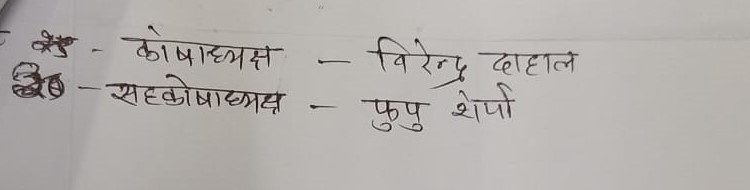 - कोषाध्यक्ष - विरेन्द्र दाहाल
- सहकोषाध्यक्ष - फुपु शेर्पा